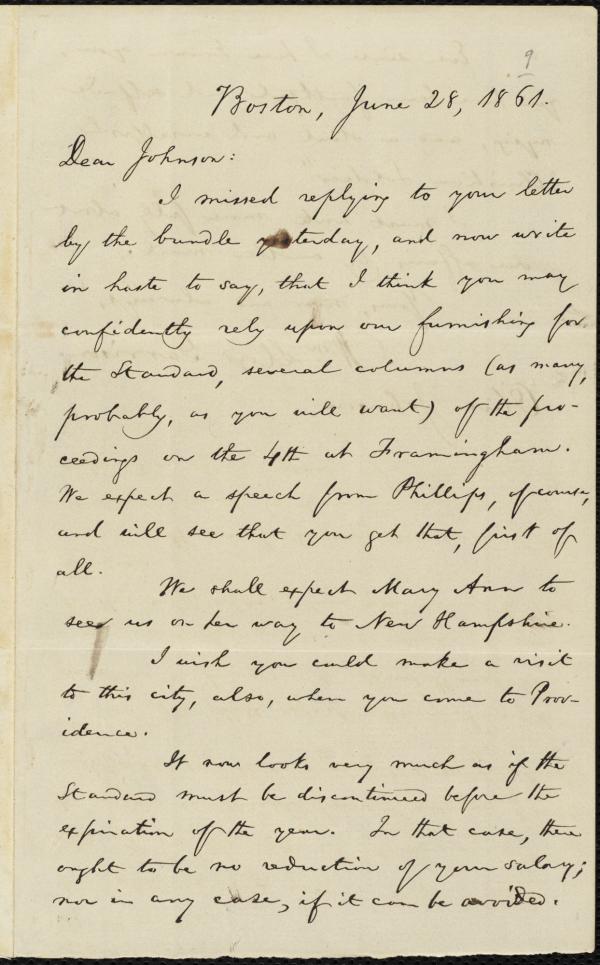 9
Boston, June 28, 1861.
Dear Johnson:
I missed replying to your letter
by the bundle yesterday, and now write
in haste to say, that I think you may
confidently rely upon our furnishing for
the Standard, several columns (as many,
probably, as you will want) of the pro-
ceedings on the 4th at Framingham.
We expect a speech from Phillips, of course,
and will see that you get that, first of
all.
We shall expect Mary Ann to
see us on her way to New Hampshire.
I wish you could make a visit
to this city, also, when you come to Prov-
idence.
It now looks very much as if the
Standard must be discontinued before the
expiration of the year. In that case, there
ought to be no reduction of your salary;
nor in any case, if it can be avoided.